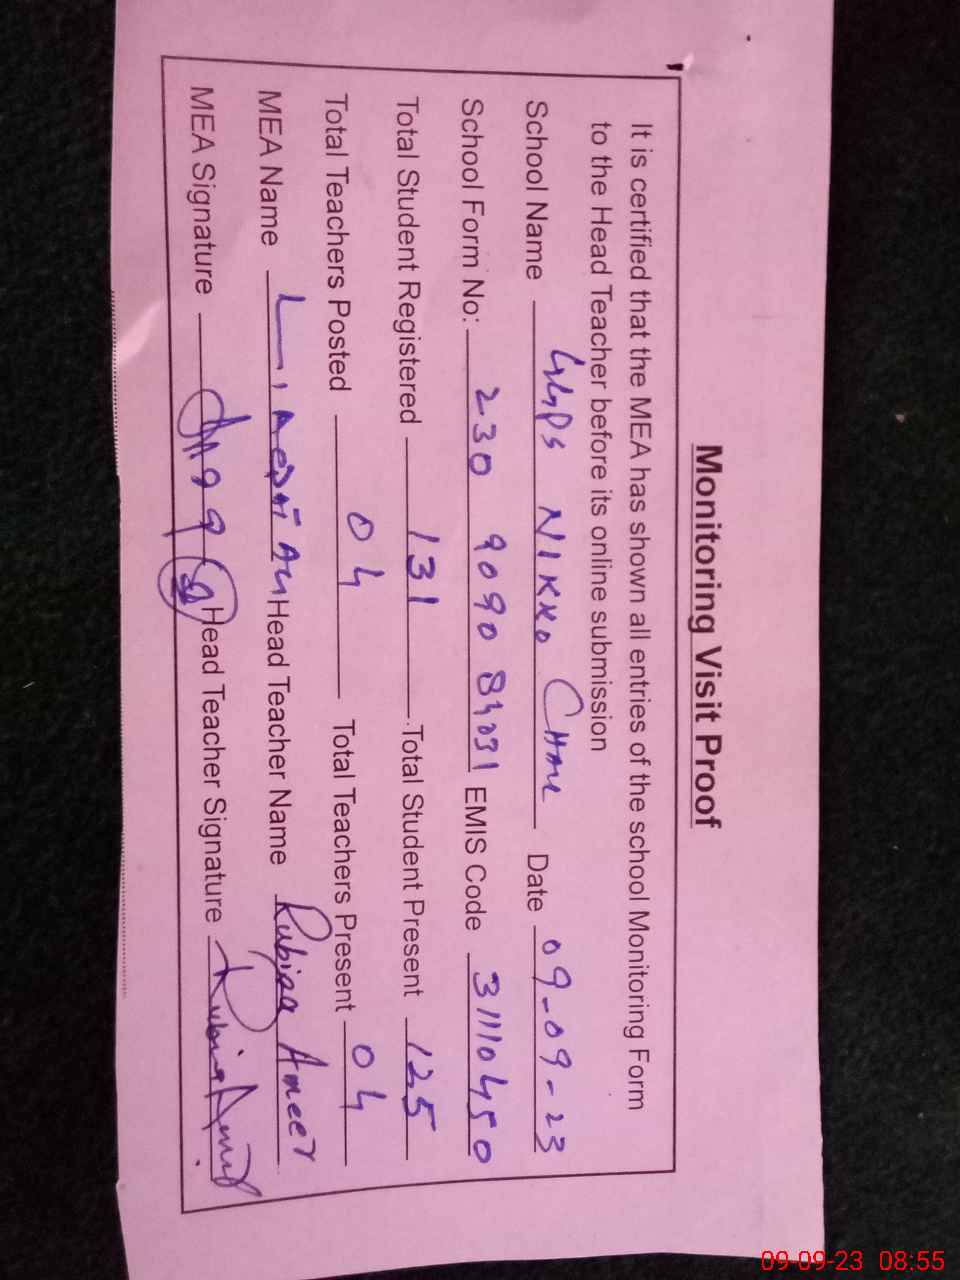 Monitoring Visit Proof
It is certified that the MEA has shown all entries of the school Monitoring Form
to the Head Teacher before its online submission
School Name GGPS NIKKO CHAK Date 09-09-23
School Form No: 230 9090 84091 EMIS Code 31110450
Total Student Registered 131 Total Student Present 125
Total Teachers Posted 04 Total Teachers Present 04
MEA Name Head Teacher Name Rubina Ameer
MEA Signature Head Teacher Signature Rubina Ameer
09-09-23 08:55